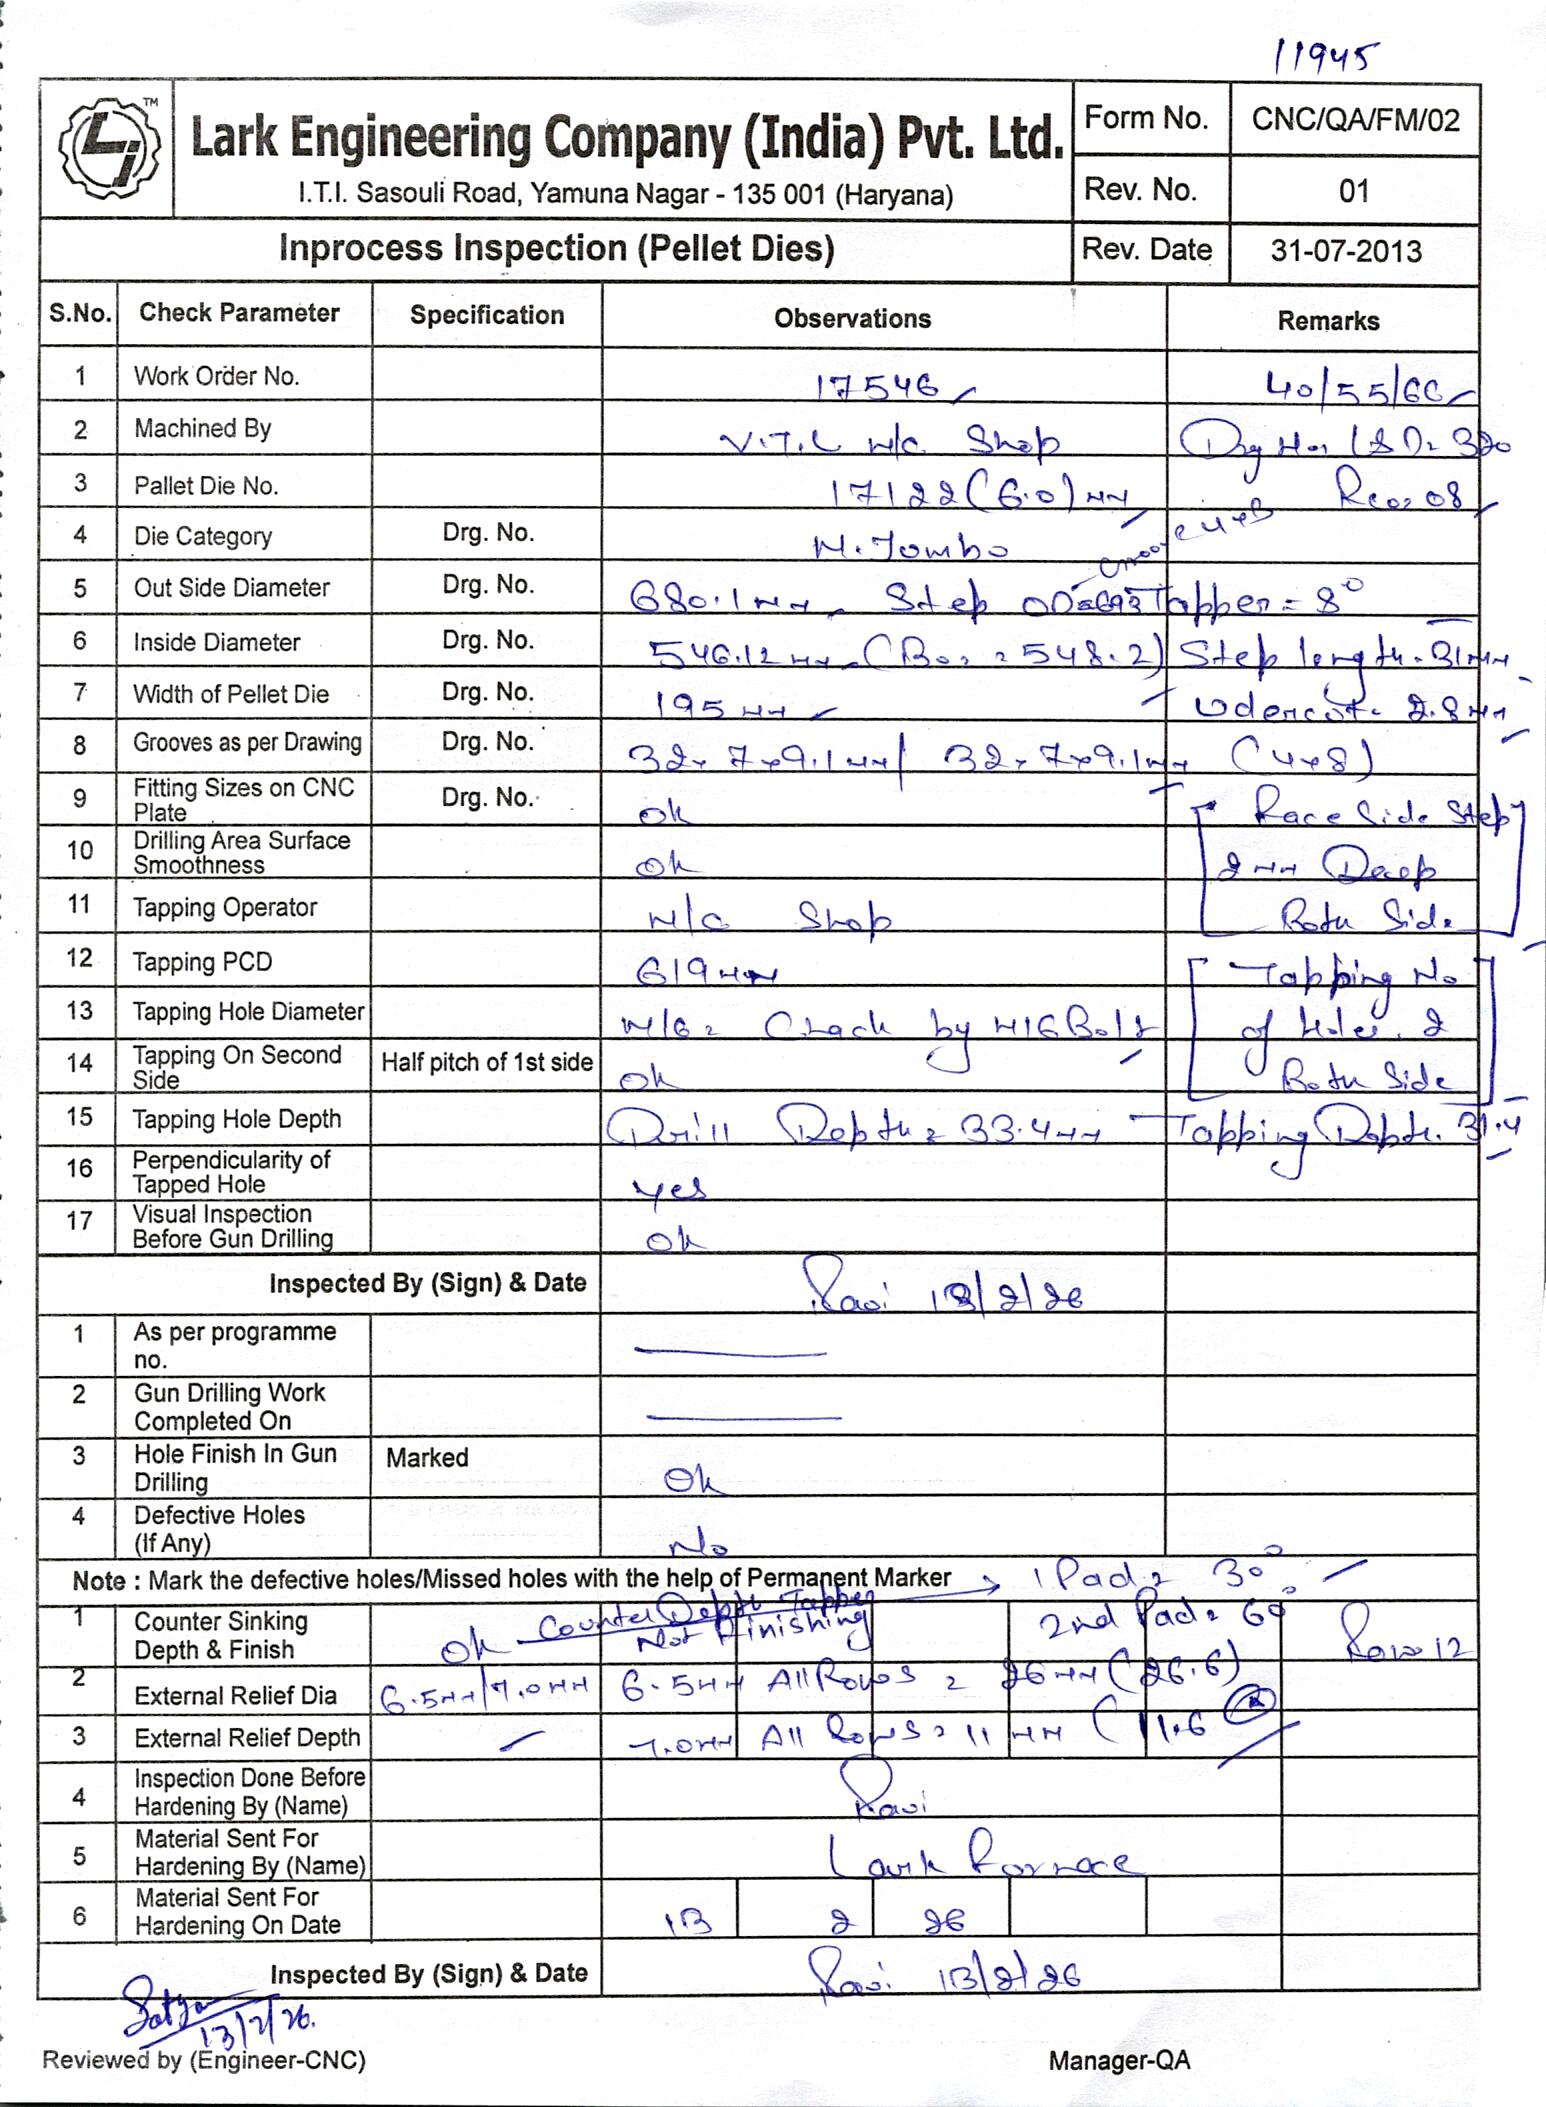 11945
TM
Lark Engineering Company (India) Pvt. Ltd.
I.T.I. Sasouli Road, Yamuna Nagar - 135 001 (Haryana)
Form No. CNC/QA/FM/02
Rev. No. 01
Inprocess Inspection (Pellet Dies) Rev. Date 31-07-2013
S.No. Check Parameter Specification Observations Remarks
1 Work Order No. 17546 40/55/66
2 Machined By V.T.L M/C Shop Drg No. LSD= 320
3 Pallet Die No. 17122 (6.0) MM 08
4 Die Category Drg. No. M. Jombo 4x8
5 Out Side Diameter Drg. No. 680.1 MM Step OD=693 Tapper = 8°
6 Inside Diameter Drg. No. 546.12 MM (Bo = 548.2) Step length. 31 MM
7 Width of Pellet Die Drg. No. 195 MM Udercut. 2.8 MM
8 Grooves as per Drawing Drg. No. 32x7x9.1 MM / 32x7x9.1 MM (4x8)
9 Fitting Sizes on CNC Plate Drg. No. Ok Race Side Step
10 Drilling Area Surface Smoothness Ok 2 MM Deep
11 Tapping Operator M/C Shop Both Side
12 Tapping PCD 619 MM Tapping No
13 Tapping Hole Diameter M16 = Chack by M16 Bolt of Holes. 2
14 Tapping On Second Side Half pitch of 1st side Ok Both Side
15 Tapping Hole Depth Drill Depth = 33.4 MM Tapping Depth. 31.4
16 Perpendicularity of Tapped Hole Yes
17 Visual Inspection Before Gun Drilling Ok
Inspected By (Sign) & Date Ravi 13/2/26
1 As per programme no.
2 Gun Drilling Work Completed On
3 Hole Finish In Gun Drilling Marked Ok
4 Defective Holes (If Any) No
Note : Mark the defective holes/Missed holes with the help of Permanent Marker → 1 Pad = 30°
1 Counter Sinking Depth & Finish Ok Counter Depth Tapper Not Finishing 2nd Pad = 60° Row 12
2 External Relief Dia 6.5 MM/7.0 MM 6.5 MM All Rows = 26 MM (26.6)
3 External Relief Depth 7.0 MM All Rows = 11 MM (11.6
4 Inspection Done Before Hardening By (Name) Ravi
5 Material Sent For Hardening By (Name) Lark Fornace
6 Material Sent For Hardening On Date 13 2 26
Inspected By (Sign) & Date Ravi 13/2/26
Satya
13/2/26.
Reviewed by (Engineer-CNC) Manager-QA